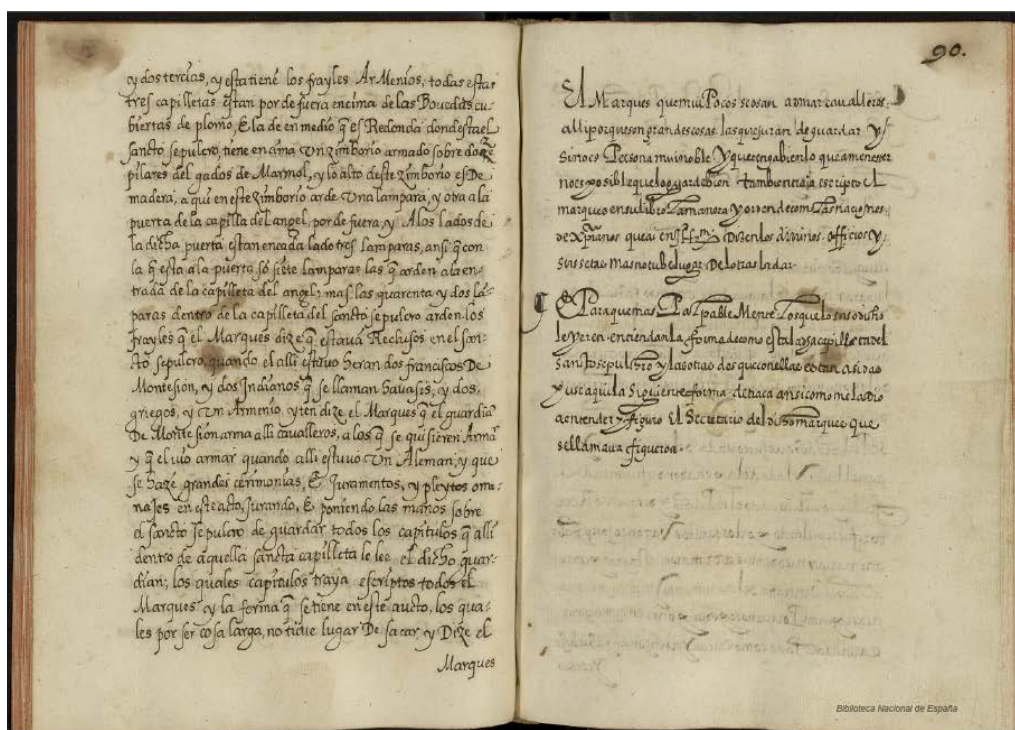 y dos tercias, y esta tiené los frayles ArMenios; todas estas
tres capilletas estan por de fuera encima de las Bouedas cu-
biertas de plomo, E la de en medio q̃ es Redonda dondesta el
sancto sepulcro, tiene en cima Un zimborio armado sobre doze
pilares delgados de Marmol, y lo alto deste zimborio es De
madera, a qui en este zimborio arde Una lampara, y otra a la
puerta de la capilla del angel, por de fuera, y A los lados de
la dicha puerta estan en cada lado tres lamparas, ansi q̃ con
la q̃ esta a la puerta, só siete lamparas las q̃ arden a la en-
trada de la capilleta del angel; mas las quarenta y dos lá-
paras dentro de la capilleta del sancto sepulcro arden. los
frayles q̃ el Marques dize q̃ estauá Reclusos en el san-
to sepulcro, quando el alli estuuo heran dos franciscos De
Montesion, y dos Indianos q̃ se llaman Sauasis, y dos,
griegos, y Un Armenio, yten dize el Marques q̃ el guardiã
De Montesion arma alli caualleros, a los q̃ se quisieren Armar
y q̃ el vio armar quando alli estuuo Un Aleman, y que
se hazé grandes cerimonias, E Juramentos, y pleytos ome-
najes en este acto, Jurando, E poniendo las manos sobre
el sancto sepulcro de guardar todos los capitulos q̃ alli
dentro de aquella sancta capilleta le lee el dicho guar-
dian; los quales capitulos traya escriptos todos el
Marques y la forma q̃ se tiene en este aucto, los qua-
les por ser cosa larga, no tuue lugar De sacar, y Dize el
Marques
90.
El Marques que mui Pocos se osan armar caualleros
alli porque son grandes cosas las que juran de guardar y
Si no es Persona mui noble y que tenga bien lo que a menester
no es posible que lo guarde bien tambien traja escripto el
marques en su libro la manera y orden de com las naciones
de Xp̃ianos que ai en Dizen los diuinos officios y
sus setas mas no tube lugar De lo trasladar
Para que mas Palpable Mente los que lo en so dicho
leyeren entiendan la forma de como esta la sa capilleta del
Santo sepulchro y las otras dos que con ella estan asi da
yuse aqui la siguiente forma de traca ansi como me la dio
a entender y figuro El Secretario del dicho marques que
se llamaua figueroa.
Biblioteca Nacional de España